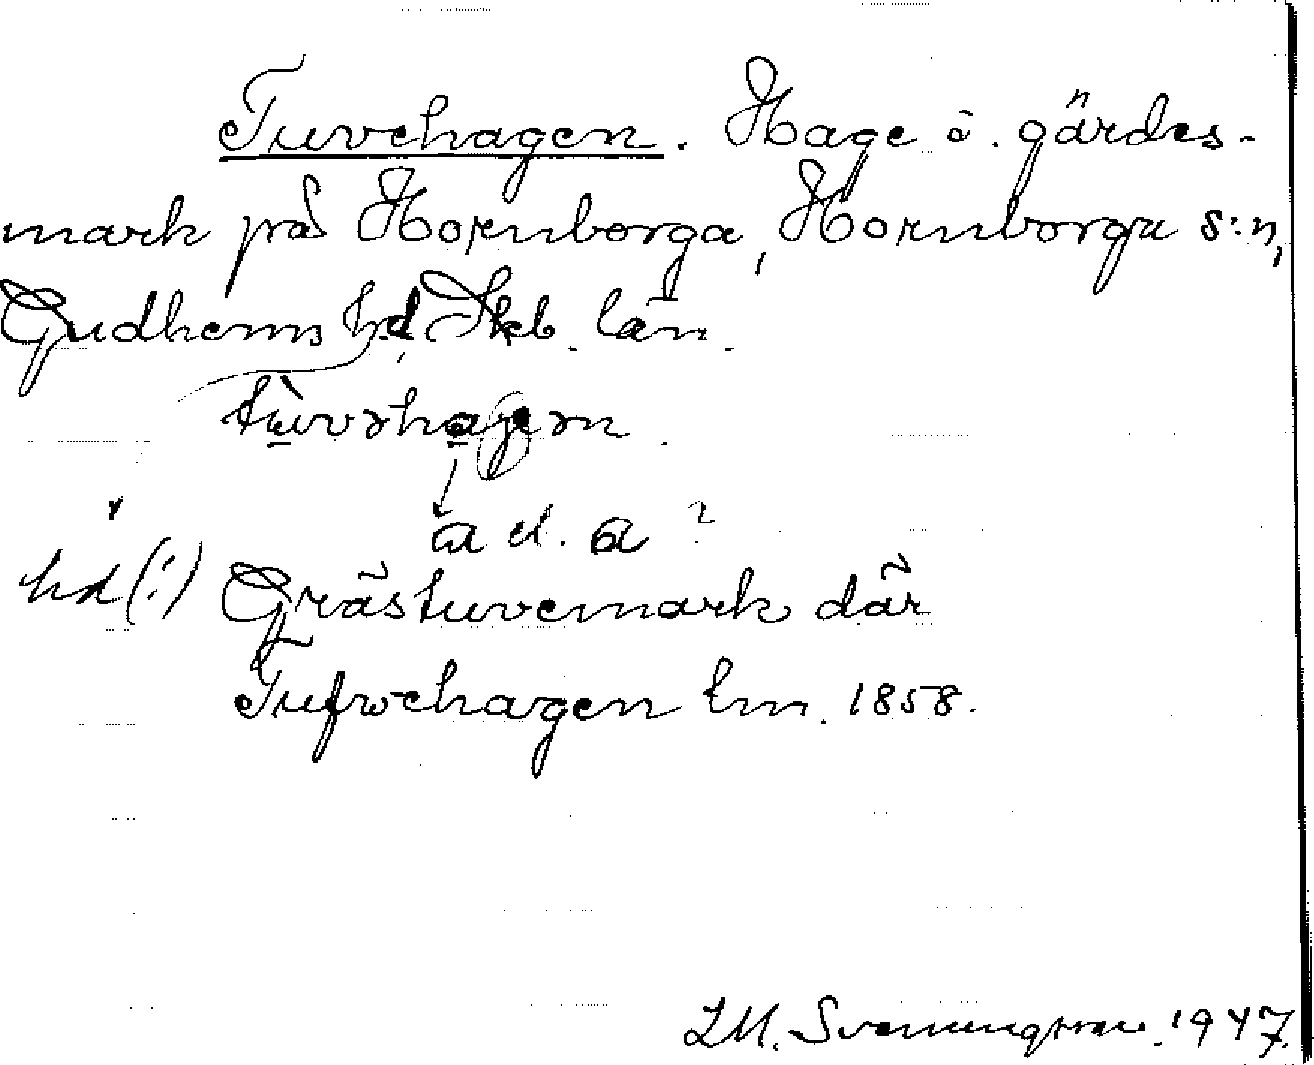 Tuvehagen. Hage ö. gärdes-
mark på Hornborga, Hornborga s:n,
Gudhems hd, Skb. län.
tùvəhagən.
a el. ɑ ?
hd (!) Grästuvemark där
Tufvehagen lm. 1858.
LM. Svenungsson. 1947.